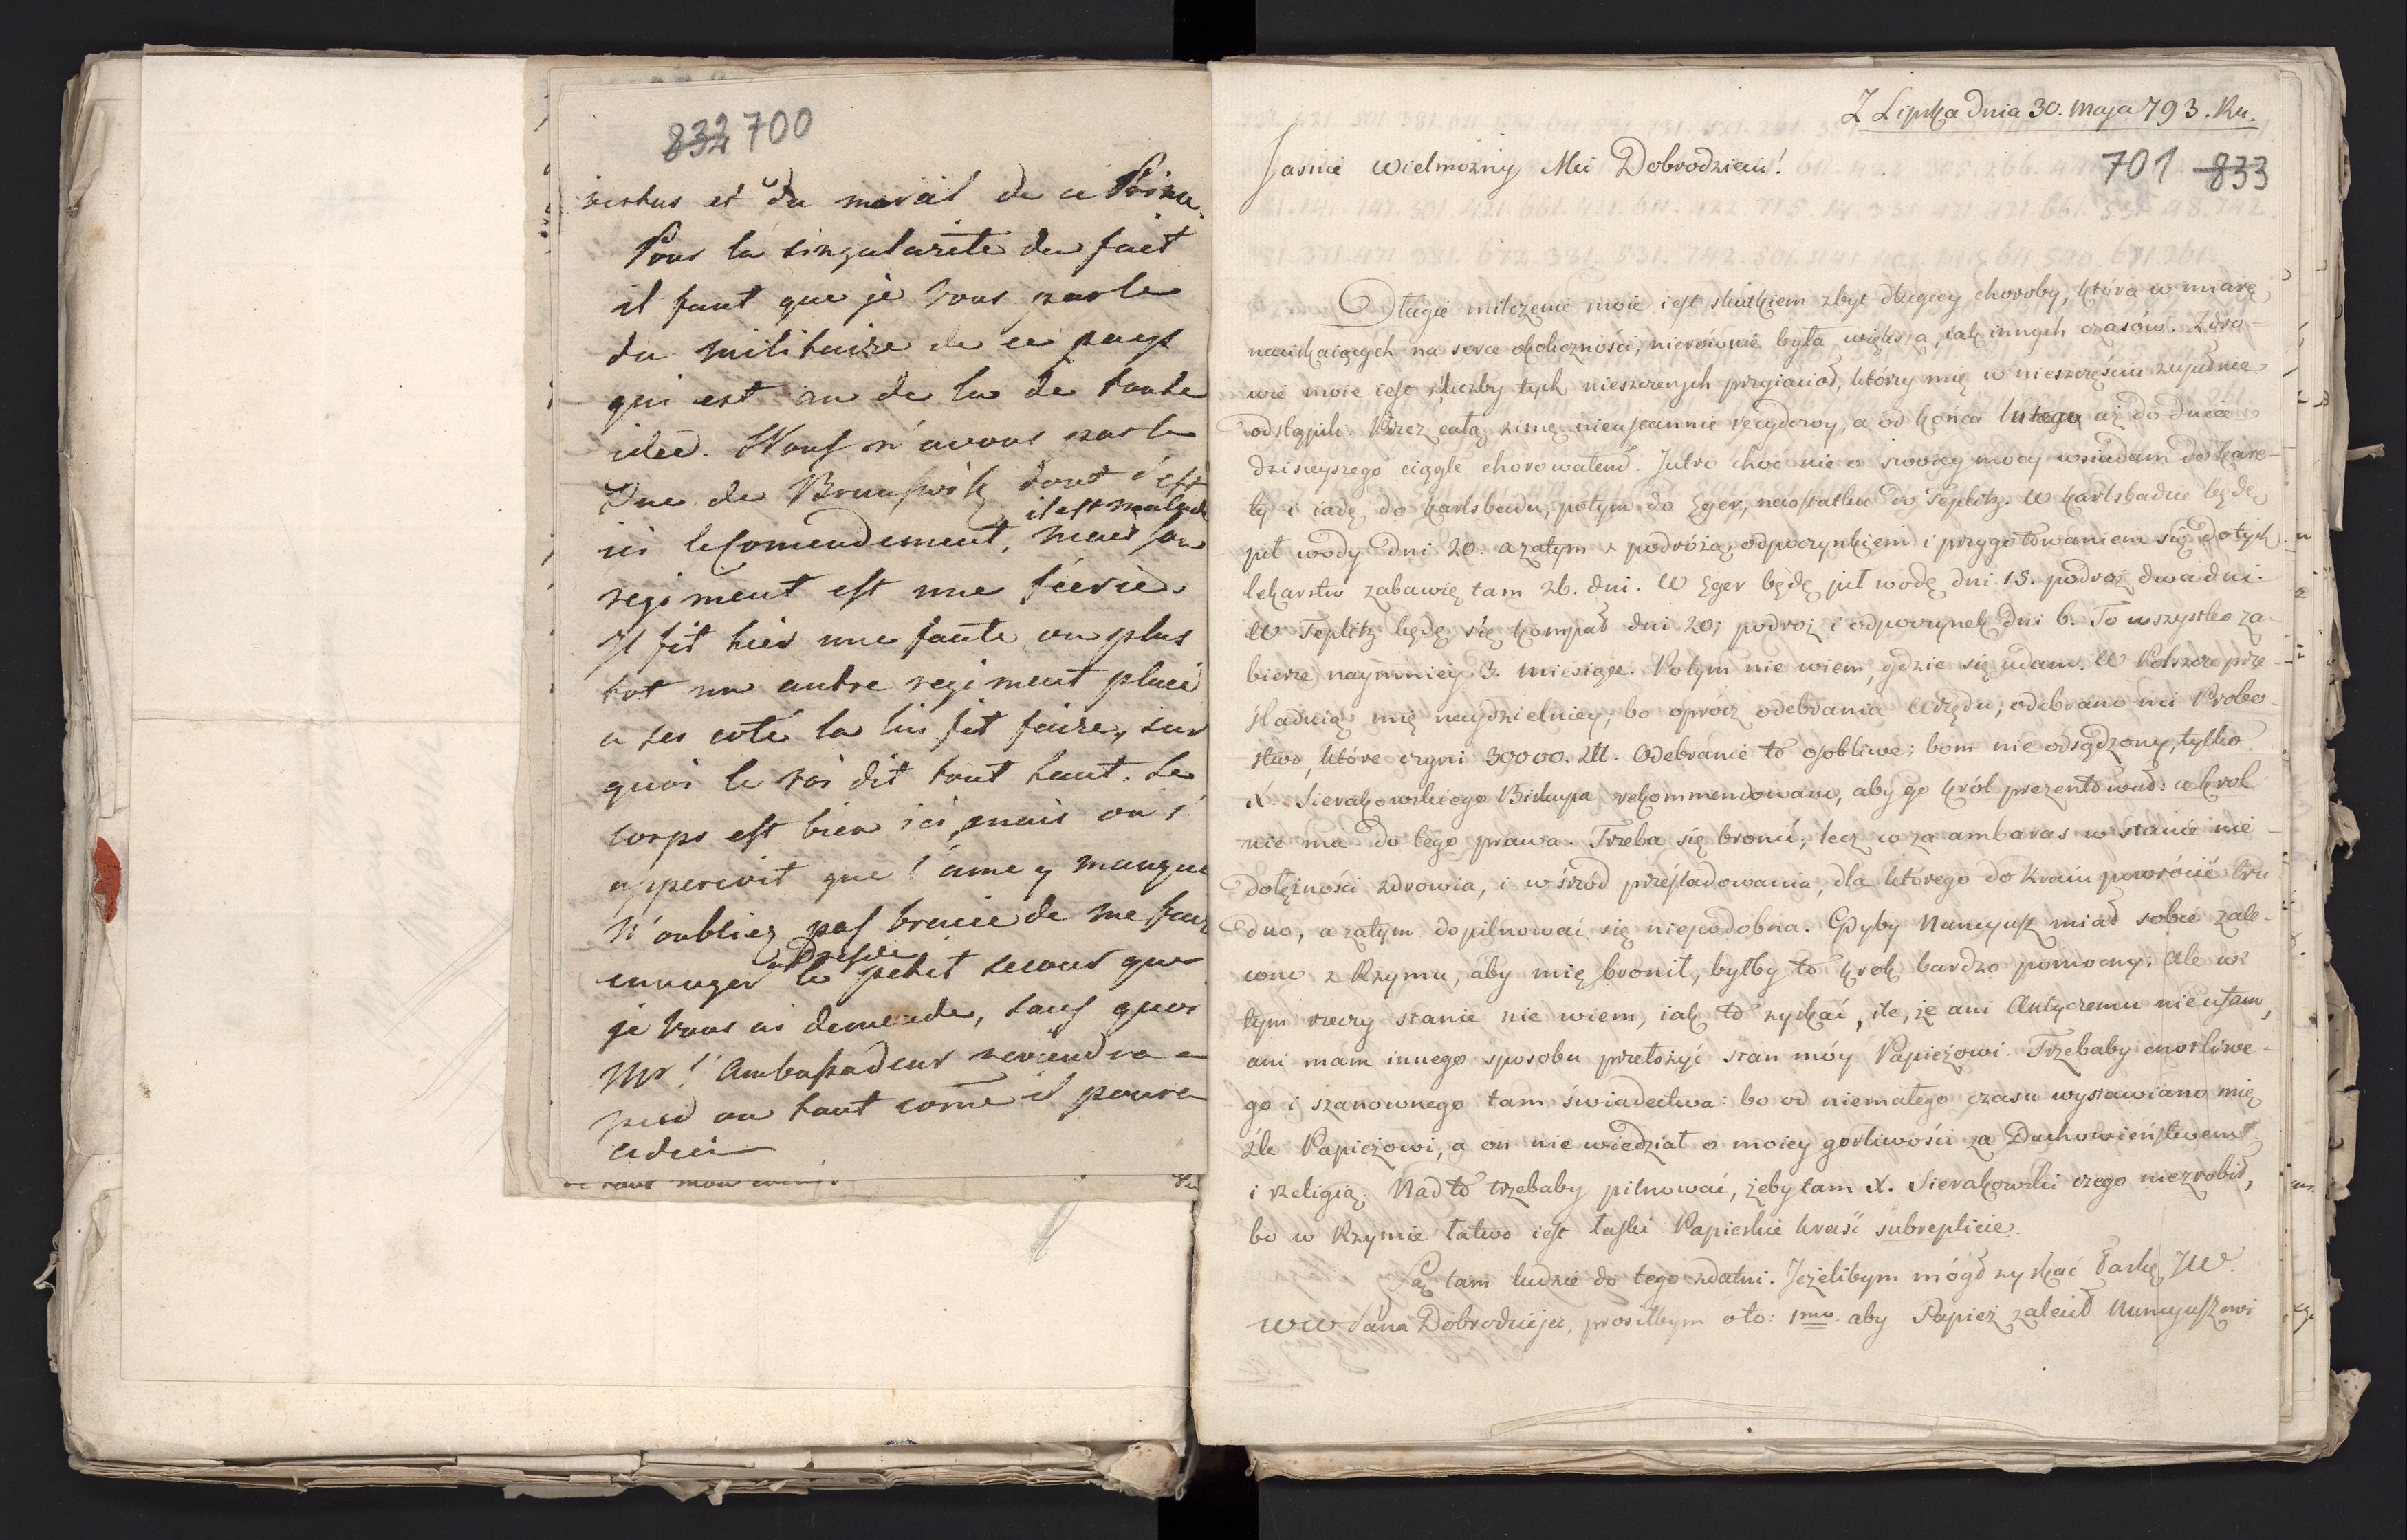 832 700
vertus et du moral de ce Prince.
Pour la singularité du fait
il faut que je vous parle
du militaire de ce pays
qui est au de la de toute
idée. Nous n'avons pas le
Duc de Brunswik dont c'est
il est malade
ici le Comendement, mais son
regiment est une féerie.
Il fit hier une faute ou plus
tot un autre regiment placé
a ses coté la lui fit faire, sur
quoi le roi dit tout haut. Le
corps est bien ici, mais on s'
apperçoit que l'ame y manque
N'oubliez pas de me faire
a Dresde
envoyer le petit secours que
je vous ai demandé, sans quoi
Mr l'Ambassadeur reviendra a
pied ou tout come il poura
adieu
Z Lipska dnia 30. Maja 793. Ru.
Jasnie Wielmożny Mci Dobrodzieiu!
701 833
Długie milczenie moie iest skutkiem zbyt długiey choroby, która w miarę
naciskaiących na serce okoliczności, nierównie była większa, iak innych czasów. Zdro-
wie moie iest z liczby tych nieszczerych przyiaciół, którzy mię w nieszczęściu zupełnie
odstąpili. Przez całą zimę nieustannie recydewy, a od końca lutego aż do dnia
dzisieyszego ciągle chorowałem. Jutro choć nie o swoiey mocy wsiadam do kare-
ty i iadę do Karlsbadu, potym do Eger, naostatku do Teplitz. W Karlsbadzie będę
pił wody dni 20. a zatym z podróżą, odpoczynkiem i przygotowaniem się do tych
lekarstw zabawię tam 26. dni. W Eger będę pił wodę dni 15. podroż dwa dni.
W Teplitz będę się kąmpał dni 20; podroż i odpoczynek dni 6. To wszystko za-
bierze naymniey 3. miesiące. Potym nie wiem, gdzie się udam. W Polszcze prze-
śladuią mię naydzielniey; bo oprócz odebrania Urzędu, odebrano mi Probo-
stwo, które czyni 30000. Zll. Odebranie to osobliwe; bom nie odsądzony, tylko
X. Sierakowskiego Biskupa rekommendowano, aby go król prezentował: a krol
nie ma do tego prawa. Trzeba się bronić, lecz co za ambaras w stanie nie-
dołężności zdrowia, i w śrzód prześladowania, dla którego do kraiu powrócić tru-
dno, a zatym dopilnować się niepodobna. Gdyby Nuncyusz miał sobie zale-
cono z Rzymu, aby mię bronił, byłby to krok bardzo pomocny. Ale w
tym rzeczy stanie nie wiem, iak to zyskać, ile, że ani Antyczemu nie ufam,
ani mam innego sposobu przełożyć stan móy Papieżowi. Trzebaby cnotliwe-
go i szanownego tam świadectwa: bo od niemałego czasu wystawiano mię
źle Papieżowi, a on nie wiedział o moiey gorliwości za Duchowieństwem
i Religią. Nad to trzebaby pilnować, żeby tam X. Sierakowski czego niezrobił,
bo w Rzymie łatwo iest łaski Papieskie kraść subreptície.
Są tam ludzie do tego zdatni. Jeżelibym mógł zyskać łaskę JW.
WW Pana Dobrodzieja, prosiłbym oto: 1mo aby Papież zalecił Nuncyuszowi